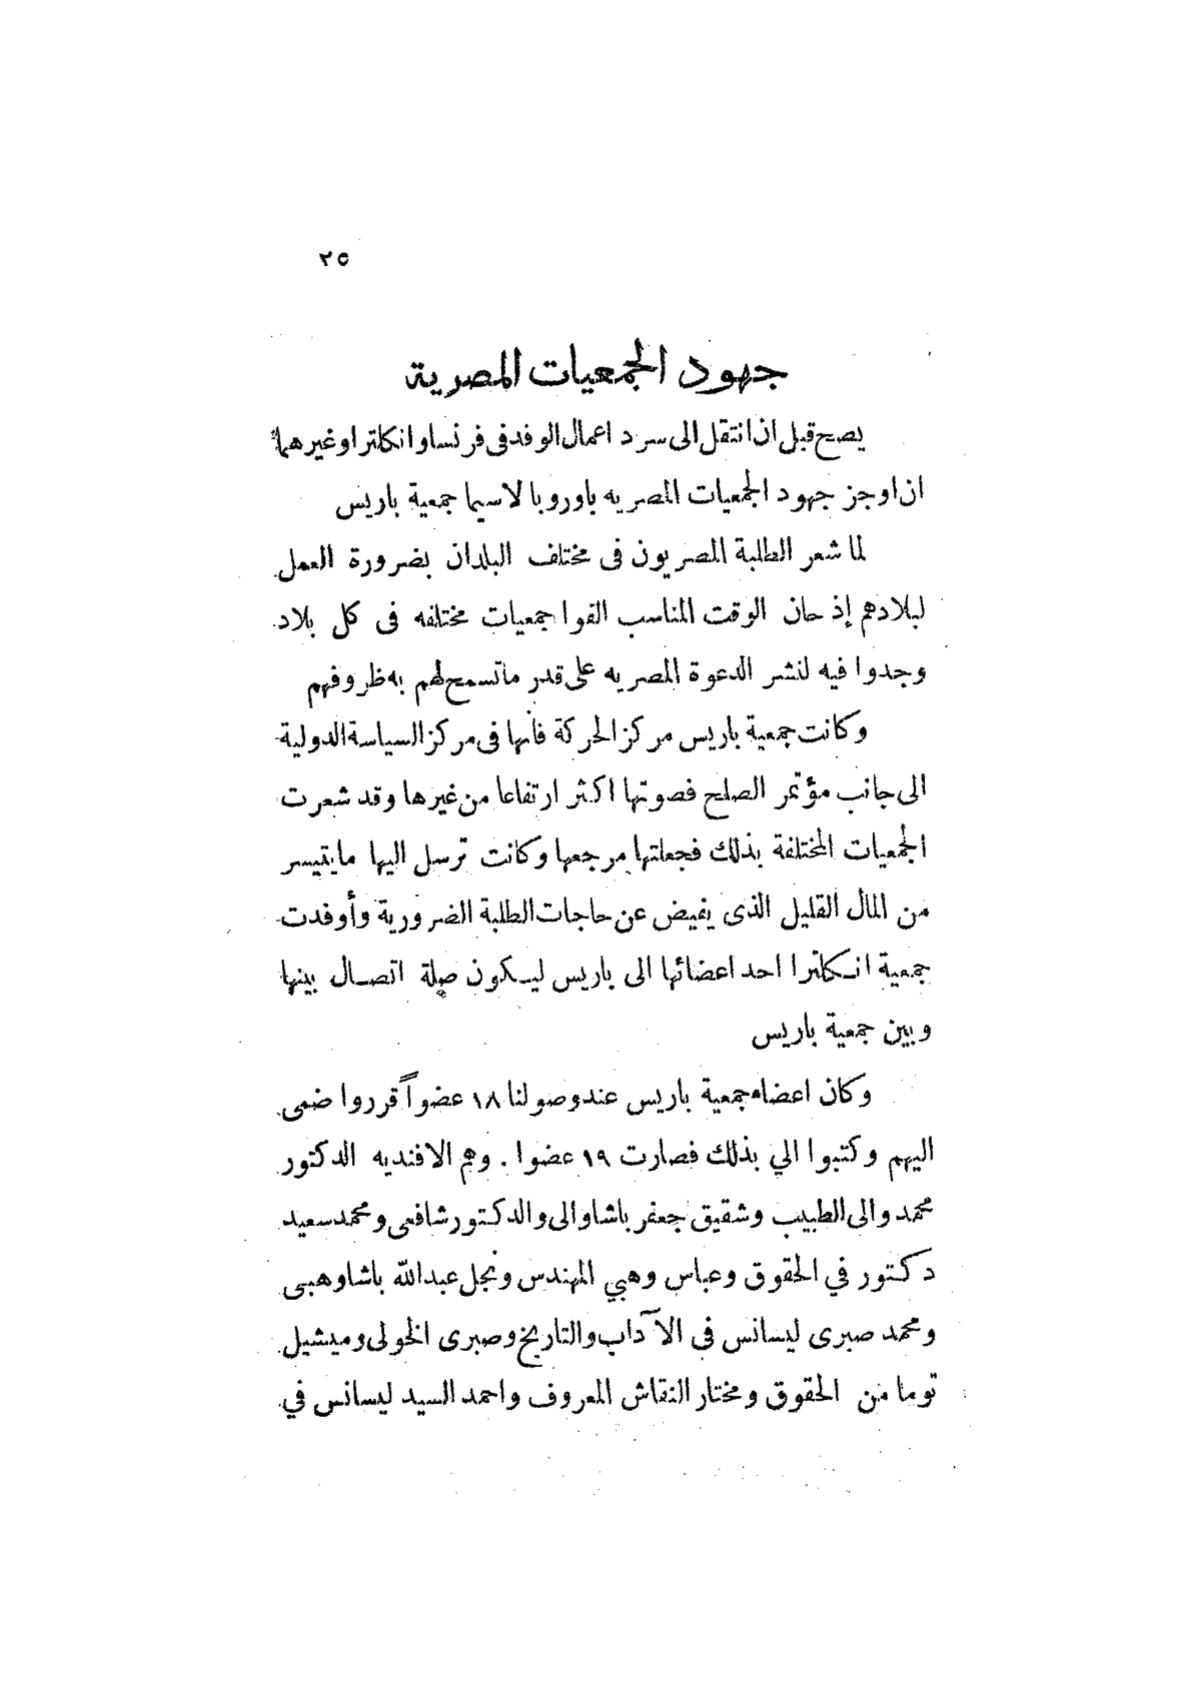 ٢٥
جهود الجمعيات المصرية
يصح قبل ان انتقل الى سرد اعمال الوفد فى فرنسا وانكلترا وغيرهما
ان اوجز جهود الجمعيات المصريه باوروبا لاسيما جمعية باريس
لما شعر الطلبة المصريون فى مختلف البلدان بضرورة العمل
لبلادهم إذ حان الوقت المناسب الفوا جمعيات مختلفه فى كل بلاد
وجدوا فيه لنشر الدعوة المصريه على قدر ماتسمح لهم به ظروفهم
وكانت جمعية باريس مركز الحركة فأنها فى مركز السياسة الدولية
الى جانب مؤتمر الصلح فصوتها اكثر ارتفاعا من غيرها وقد شعرت
الجمعيات المختلفة بذلك فجعلتها مرجعها وكانت ترسل اليها مايتيسر
من المال القليل الذى يفيض عن حاجات الطلبة الضرورية وأوفدت
جمعية انكلترا احد اعضائها الى باريس ليكون صلة اتصال بينها
وبين جمعية باريس
وكان اعضاء جمعية باريس عند وصولنا ١٨ عضواً قرروا ضمى
اليهم وكتبوا الي بذلك فصارت ١٩ عضوا . وهم الافنديه الدكتور
محمد والى الطبيب وشقيق جعفر باشا والى والدكتور شافعى ومحمد سعيد
دكتور في الحقوق وعباس وهبي المهندس ونجل عبد الله باشا وهبى
ومحمد صبرى ليسانس فى الآداب والتاريخ وصبرى الخولى وميشيل
توما من الحقوق ومختار النقاش المعروف واحمد السيد ليسانس في